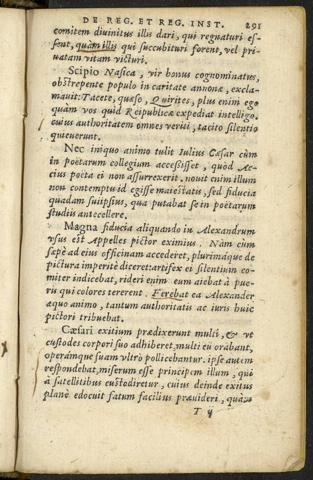 DE REG. ET REG. INST. 291
comitem diuinitus illis dari, qui regnaturi es-
sent, quàm illis qui succubituri forent, vel pri-
uatam vitam victuri.
Scipio Nasica, vir bonus cognominatus,
obstrepente populo in caritate annonæ, excla-
mauit: Tacete, quæso, Quirites, plus enim ego
quàm vos quid Reipublicæ expediat intelligo.
cuius authoritatem omnes veriti, tacito silentio
quieuerunt.
Nec iniquo animo tulit Iulius Cæsar cùm
in poëtarum collegium accessisset, quòd Ac-
cius poëta ei non assurrexerit. nouit enim illum
non contemptu id egisse maiestatis, sed fiducia
quadam suiipsius, qua putabat se in poëtarum
studiis antecellere.
Magna fiducia aliquando in Alexandrum
vsus est Appelles pictor eximius. Nam cùm
sæpè ad eius officinam accederet, plurimáque de
pictura imperitè diceret: artifex ei silentium co-
miter indicebat, rideri enim eum aiebat à pue-
ris qui colores tererent. Ferebat ea Alexander
æquo animo, tantum authoritatis ac iuris huic
pictori tribuebat.
Cæsari exitium prædixerunt multi, & vt
custodes corpori suo adhiberet, multi eū orabant,
operámque suam vltrò pollicebantur. ipse autem
respondebat, miserum esse principem illum, qui
à satellitibus custodiretur, cuius deinde exitus
planè edocuit fatum facilius præuideri, quàm
T ij